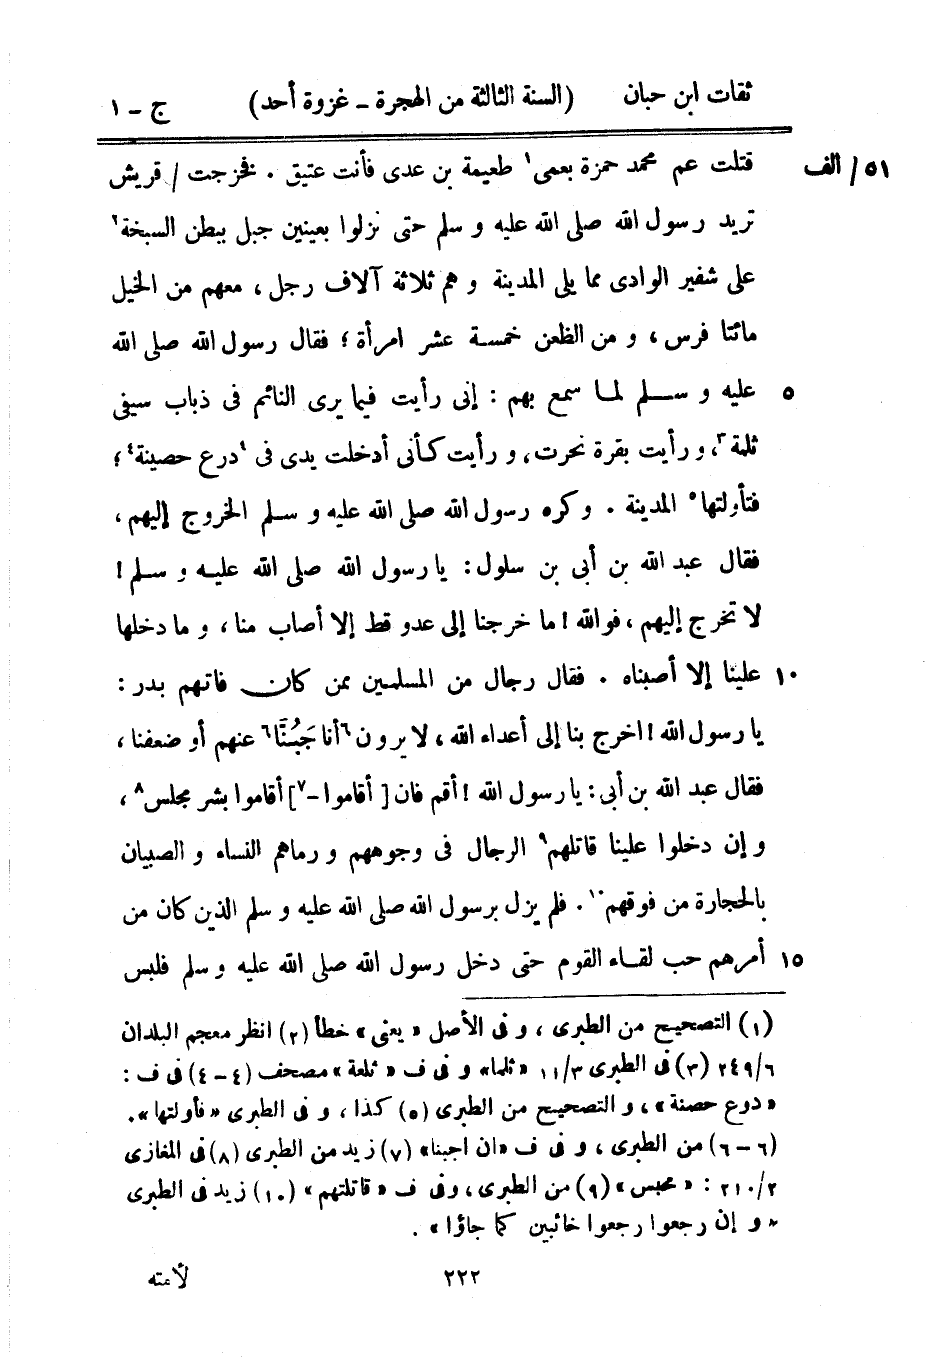 ثقات ابن حبان (السنة الثالثة من الهجرة - غزوة أحد) ج - ١
قتلت عم محمد حمزة بعمى١ طعيمة بن عدى فأنت عتيق . فخرجت / قريش ٥١/ الف
تريد رسول الله صلى الله عليه و سلم حتى نزلوا بعينين جبل ببطن السبخة٢
على شفير الوادى مما يلى المدينة و هم ثلاثة آلاف رجل ، معهم من الخيل
مائتا فرس ، و من الظعن خمسة عشر امرأة ؛ فقال رسول الله صلى الله
عليه و سلم لما سمع بهم : إنى رأيت فيما يرى النائم فى ذباب سيفى ٥
ثلمة٣، و رأيت بقرة نحرت، و رأيت كأنى أدخلت يدى فى ٤درع حصينة٤ ؛
فتأولتها٥ المدينة . و كره رسول الله صلى الله عليه و سلم الخروج إليهم ،
فقال عبد الله بن أبى بن سلول : يا رسول الله صلى الله عليه و سلم !
لا تخرج إليهم ، فوالله ! ما خرجنا إلى عدو قط إلا أصاب منا ، و ما دخلها
علينا إلا أصبناه . فقال رجال من المسلمين ممن كان فاتهم بدر : ١٠
يا رسول الله ! اخرج بنا إلى أعداء الله ، لا يرون ٦أنا جَبُنَّا٦ عنهم أو ضعفنا ،
فقال عبد الله بن أبى : يا رسول الله ! أقم فان [ أقاموا -٧] أقاموا بشر مجلس٨ ،
و إن دخلوا علينا قاتلهم٩ الرجال فى وجوههم و رماهم النساء و الصبيان
بالحجارة من فوقهم١٠ . فلم يزل برسول الله صلى الله عليه و سلم الذين كان من
أمرهم حب لقاء القوم حتى دخل رسول الله صلى الله عليه و سلم فلبس ١٥
(١) التصحيح من الطبرى ، و فى الأصل « يعنى » خطأ (٢) انظر معجم البلدان
٦/٢٤٩ (٣) فى الطبرى ٣/١١ «ثلما» و فى ف « ثلعة » مصحف (٤-٤) فى ف :
«دوع حصنة» ، و التصحيح من الطبرى (٥) كذا ، و فى الطبرى «فأولتها».
(٦-٦) من الطبرى ، و فى ف «ان اجبنا» (٧) زيد من الطبرى (٨) فى المغازى
٢/٢١٠ : « محبس » (٩) من الطبرى ، وفى ف « قاتلتهم » (١٠) زيد فى الطبرى
« و إن رجعوا رجعوا خائبين كما جاؤا » .
٢٢٢ لأمته